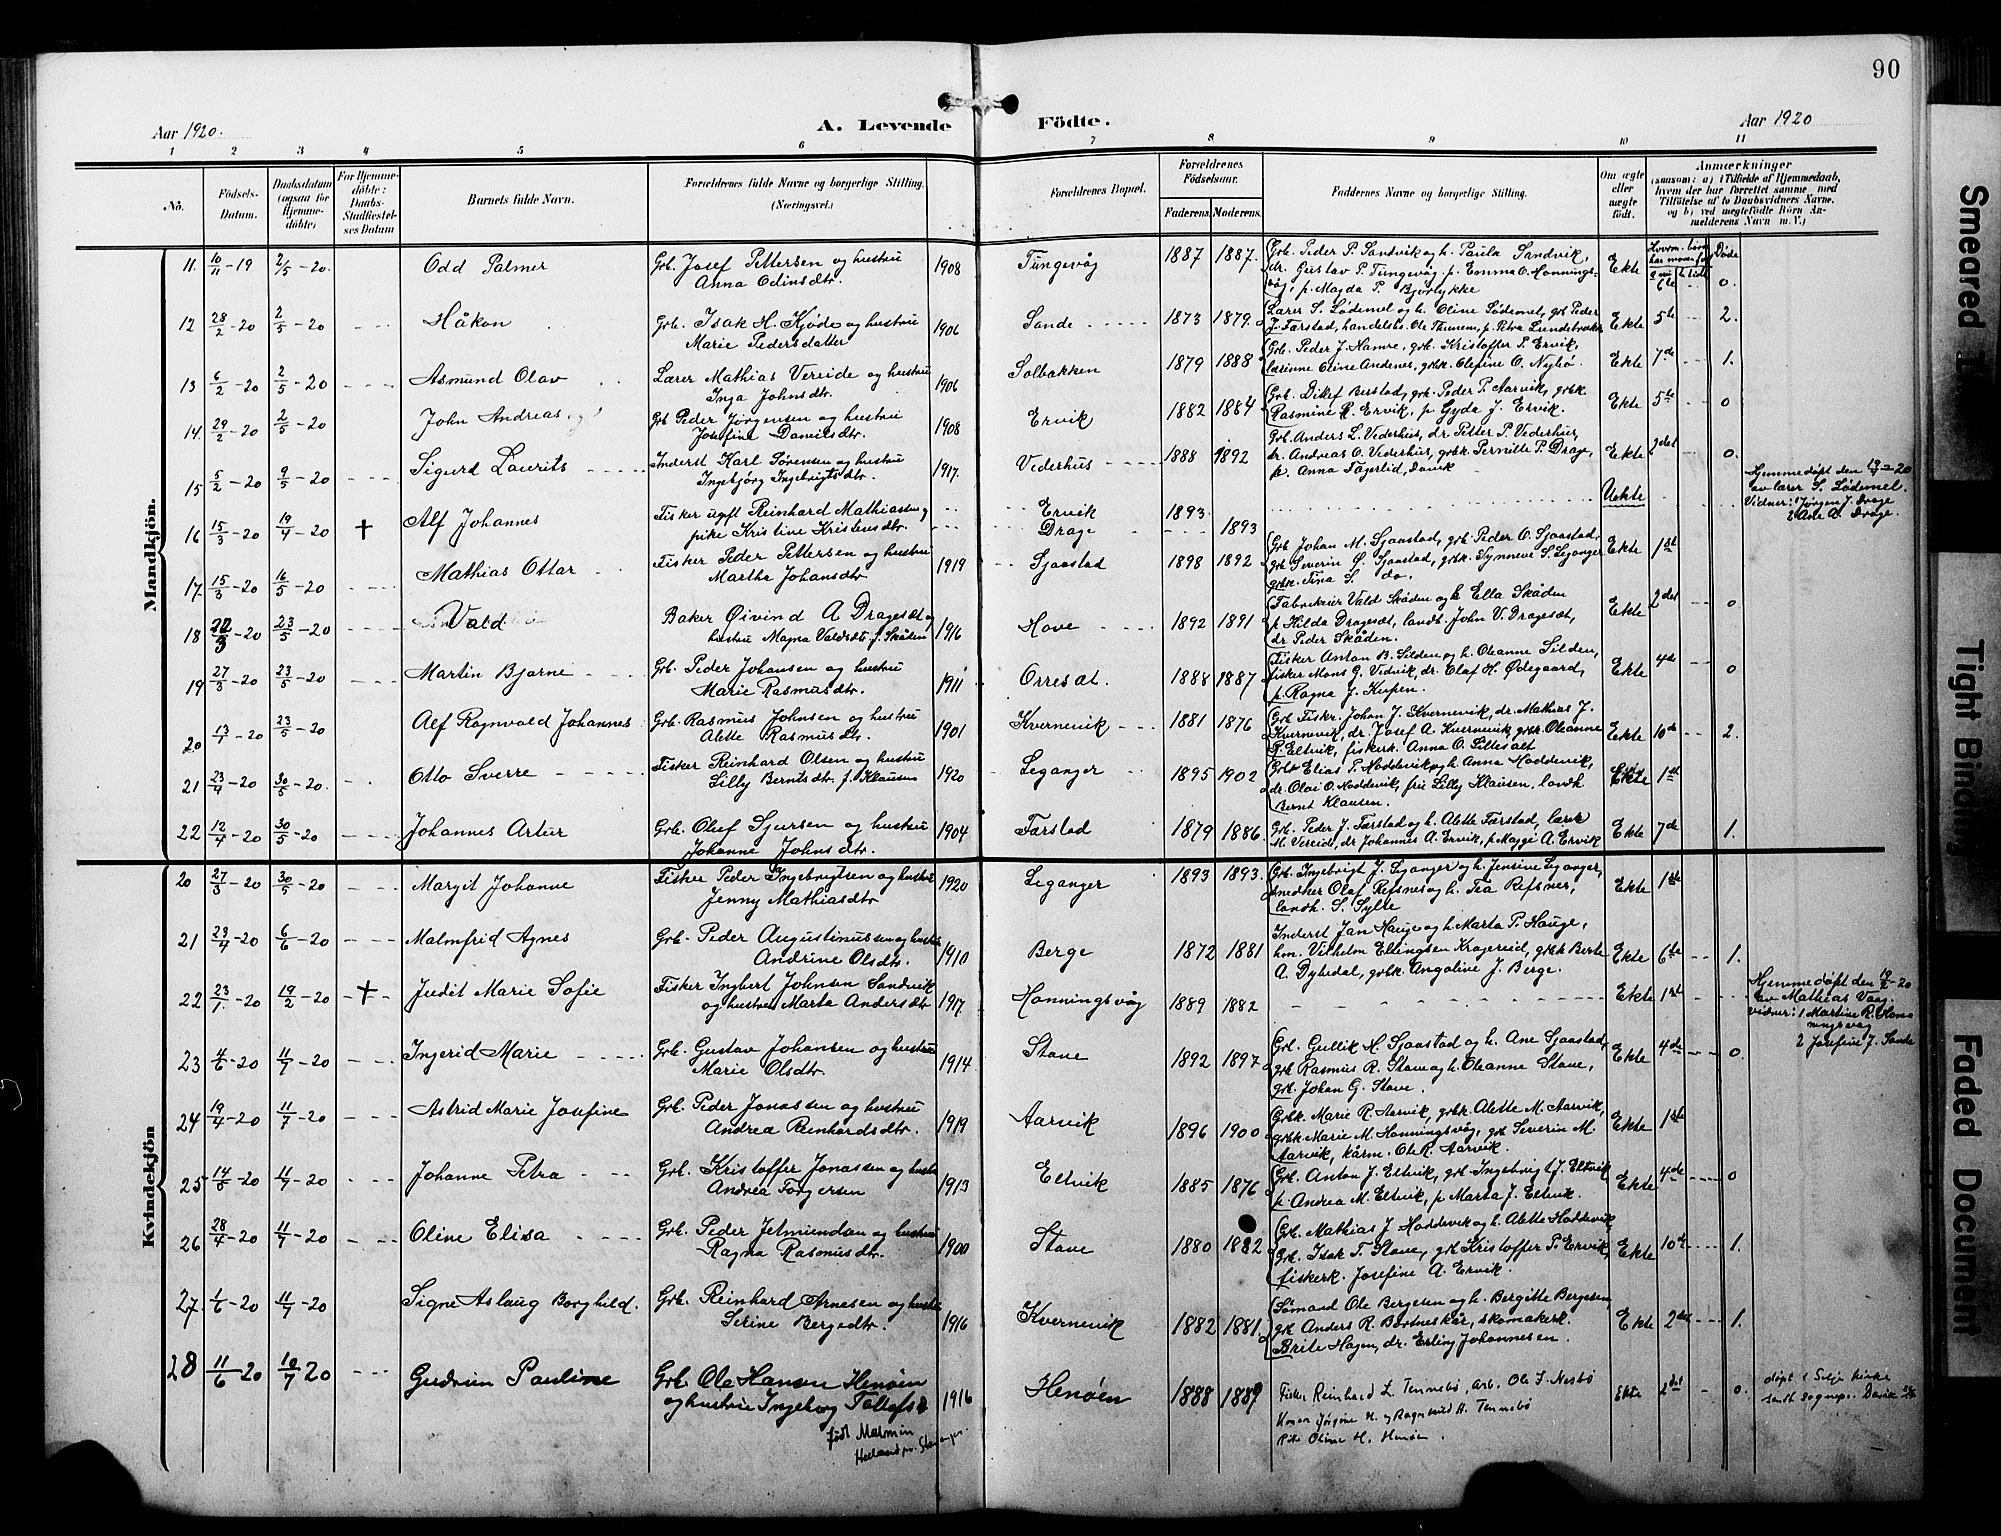 90
Aar 1920.
A. Levende Födte.
Aar 1920
1 2 3 4 5 6 7 8 9 10 11
No.
Födsels-Datum.
Daabsdatum (ogsaa for Hjemmedöbte)
For Hjemmedöbte: Daabs-Stadfæstelses Datum
Barnets fulde Navn.
Forældrenes fulde Navne og borgerlige Stilling. (Næringsvei.)
Forældrenes Bopæl.
Forældrenes Födselsaar.
Faderens. Moderens.
Faddernes Navne og borgerlige Stilling.
Om ægte eller uægte födt.
Anmærkninger
(saasom: a) i Tilfælde af Hjemmedaab, hvem der har forrettet samme, med Tilföielse af to Daabsvidners Navne, og b) ved uægtefödte Börn Anmelderens Navn m. V.)
Mandkjön.
11. 10/11-19 2/5-20. Odd Palmer Grb. Josef Pettersen og hustru Anna Odinsdtr. 1908 Tungevåg 1887 1887. Grb. Peder P. Sandvik og h. Paula Sandvik, dr. Gustav P. Tungevåg, p. Emma O. Honningsvåg, p. Magda P. Bjørlykke Ekte 6te 0.
12 28/2-20 2/5-20 Håkon Grb. Isak H. Kjøde og hustru Marie Pedersdatter 1906 Sande 1873 1879. Lærer S. Lødemel og h. Oline Lødemel, grb Peder J. Færstad, handelsb. Ole Thunem, p. Petra Ekte 5te 2.
13 6/2-20 2/5-20 Asmund Olav Lærer Mathias Vereide og hustru Inga Johnsdtr. 1906 Solbakken 1879 1888 Grb. Peder J. Hamre, grb. Kristoffer P. Ervik, lærinne Oline Andenes, grbk. Olefine O. Nybø Ekte 7de 1.
14. 29/2-20 2/5-20 John Andreas Grb Peder Jørgensen og hustru Josefine Danielsdtr. 1908 Ervik 1882 1884 Grb. Ditlef Berstad, grb. Peder P. Aarvik, grbk. Rasmine R. Ervik, p Gyda J. Ervik. Ekte 5te 0
15 5/2-20 9/5-20 Sigurd Laurits Inderst Karl Sørensen og hustru Ingebjørg Ingebrigtsdtr. 1917. Vederhus 1888 1892 Grb. Anders L. Vederhus, dr. Petter P. Vederhus, dr. Andreas O. Vederhus, grbk. Pernille P. Drage, p. Anna Fagerlid, Davik Ekte 2det 0.
16 15/3-20 19/4-20 + Alf Johannes Fisker ugift Reinhard Mathiassen og pike Kristine Kristensdtr. Ervik Drage 1893 1893 Uekte Hjemmedøpt den 19/4-20 av lærer S. Lødemel. Vidner: 1 Jørgen J. Drage 2 A. Drage.
17. 15/3-20 16/5-20 Mathias Ottar Fisker Peder Pettersen og hustru Marthe Johansdtr. 1919 Sjaastad 1898 1892 Grb Johan M. Sjaastad, grb. Peder O. Sjaastad, grb Severin O. Sjaastad, grbk. Synneve S. Leganger grbk. Tina S. do. Ekte 1st
18 22/3-20 23/5-20 Vald Baker Øivind A Dragesæt og hustru Magna Valdsdtr. f. Skåden 1916 Hove 1892 1891 Fabrikeier Vald Skåden og h. Ella Skåden p Hilda Dragesæt, landh. John V. Dragesæt, dr Peder Skåden. Ekte 2det 0
19 27/3-20 23/5-20 Martin Bjarne Grb. Peder Johansen og hustru Marie Rasmusdtr. 1911 Orresæt 1888 1887 Fisker Anton B. Silden og h. Oleanne Silden, fisker Mons G. Vedvik, dr. Olaf H. Ødegaard, p. Ragna J. Ekte 4de 0
20 23/5-20 Alf Ragnvald Johannes Grb. Rasmus Johnsen og hustru Alette Rasmusdtr. 1901 Kvernevik 1881 1876 Grb Fiskr. Johan J. Kvernevik, dr. Mathias J. Kvernevik, dr. Josef A. Kvernevik, grbk Oleanne P. Eltvik, fiskerk. Anna O. Ekte 10de 2.
21 23/4-20 30/5-20. Otto Sverre Fisker Reinhard Olsen og hustru Lilly Berntsdtr. f. Klausen 1920 Leganger 1895 1902 Grb Elias P. Hoddevik og h. Anna Hoddevik, dr. Olai O. Hoddevik, frk Lilly Klausen, landh. Bernt Klausen. Ekte 1st
22 12/4-20 30/5-20 Johannes Artur Grb. Oluf Sjursen og hustru Johanne Johnsdtr. 1904 Færstad 1879 1886. Grb. Peder J. Færstad og h. Alette Færstad, lærer M. Vereide, dr Johannes A. Ervik, p. Magge A. Ervik Ekte 7de 1.
Kvindekjön
20 27/3-20 30/5-20 Margit Johanne Fisker Peder Ingebrigtsen og hustru Jenny Mathiasdtr 1920 Leganger 1893 1893. Grb. Ingebrigt J. Leganger og h. Jensine Leganger, snedker Olaf Refsnes og h. Tea Refsnes, landh. S. Sylte Ekte 1ste
21 23/4-20 6/6-20 Malmfrid Agnes Grb. Peder Augustinussen og hustru Andrine Olsdtr. 1910 Berge 1872 1881 Inderst Jan Hauge og h. Marta P. Hauge, hm. Vilhelm Ellingsen Kragereid, grbk Berte A. Dybedal, grbk. Angoline J. Berge. Ekte 6te 1.
22 23/1-20 19/2-20 + Judit Marie Sofie Fisker Ingbert Johnsen Sandvik og hustru Marta Andersdtr 1917. Honningsvåg 1889 1882 Ekte 1st Hjemmedøpt den 19/2-20 av Mathias Vaag. vidner: 1 Martine R. Honningsvåg 2 Josefine J. Sande
23 4/6-20 11/7-20 Ingerid Marie Grb. Gustav Johansen og hustru Marie Olsdtr. 1914 Stave 1892 1897 Grb. Gullik H. Sjaastad og h. Ane Sjaastad, grb Rasmus R. Stave og h. Oleanne Stave, grb. Johan G. Stave. Ekte 4de 0.
24 19/4-20 11/7-20 Astrid Marie Josefine Grb. Peder Jonassen og hustru Andrea Reinhardsdtr. 1919 Aarvik 1896 1900 Grbk. Marie R. Aarvik, grbk. Alette M. Aarvik, grbk Marie M. Honningsvåg, grb Severin M. Aarvik, kårm. Ole R. Aarvik. Ekte 1ste
25 14/5-20 11/7-20 Johanne Petra Grb. Kristoffer Jonassen og hustru Andrea Torgersen 1913 Eltvik 1885 1876 Grb. Anton J. Eltvik, grb. Ingebrigt J. Eltvik p. Andrea M. Eltvik, p Marta J. Eltvik. Ekte 4de 0
26 28/4-20 11/7-20 Oline Elisa Grb. Peder Jetmundsen og hustru Ragna Rasmusdtr. 1900 Stave 1880 1882 Grb. Mathias J Hoddevik og h. Alette Hoddevik Grb. Isak T. Stave, grb Kristoffer P. Ervik, fiskerk. Josefine A. Ervik. Ekte 10de 1.
27. 1/6-20 11/7-20 Signe Aslaug Borghild. Grb. Reinhard Arnesen og hustru Serine Bergsdtr. 1916 Kvernevik 1882 1881 Sømand Ole Bergesen og h. Bergitte Bergesen, grb Anders R. Bortneskår, skomakerk. Brite Hagen, dr. Erling Johannesen. Ekte 2det 1.
28 11/6-20 10/7 20 Gudrun Pauline Grb. Ole Hansen Henøen og hustru Ingeborg Tollefsd. født Malmin 1916 Henøen 1888 1889 Fisker Reinhard L. Tennebø, arb. Ole J. Nesbø Koner Jørgine H. og Ragnhild H. Tennebø Pike Oline H. Henøen. Ekte 2det 0. døpt i Selje kirke
Smeared I
Tight Binding
Faded Document